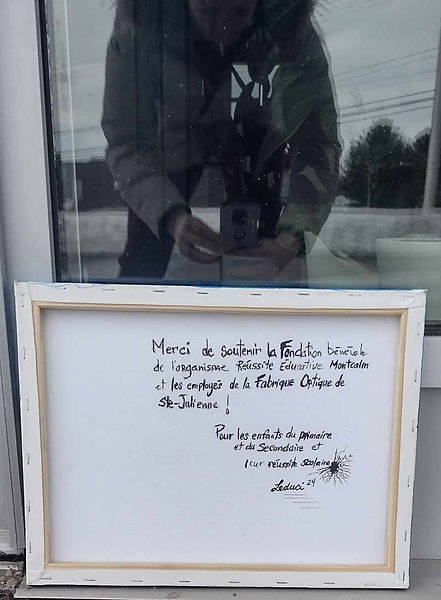 Merci de soutenir la Fondation bénévole
de l'organisme Réussite Éducative Montcalm
et les employés de la Fabrique Optique de
Ste-Julienne !
Pour les enfants du primaire
et du Secondaire et
leur réussite scolaire
Leduci 24